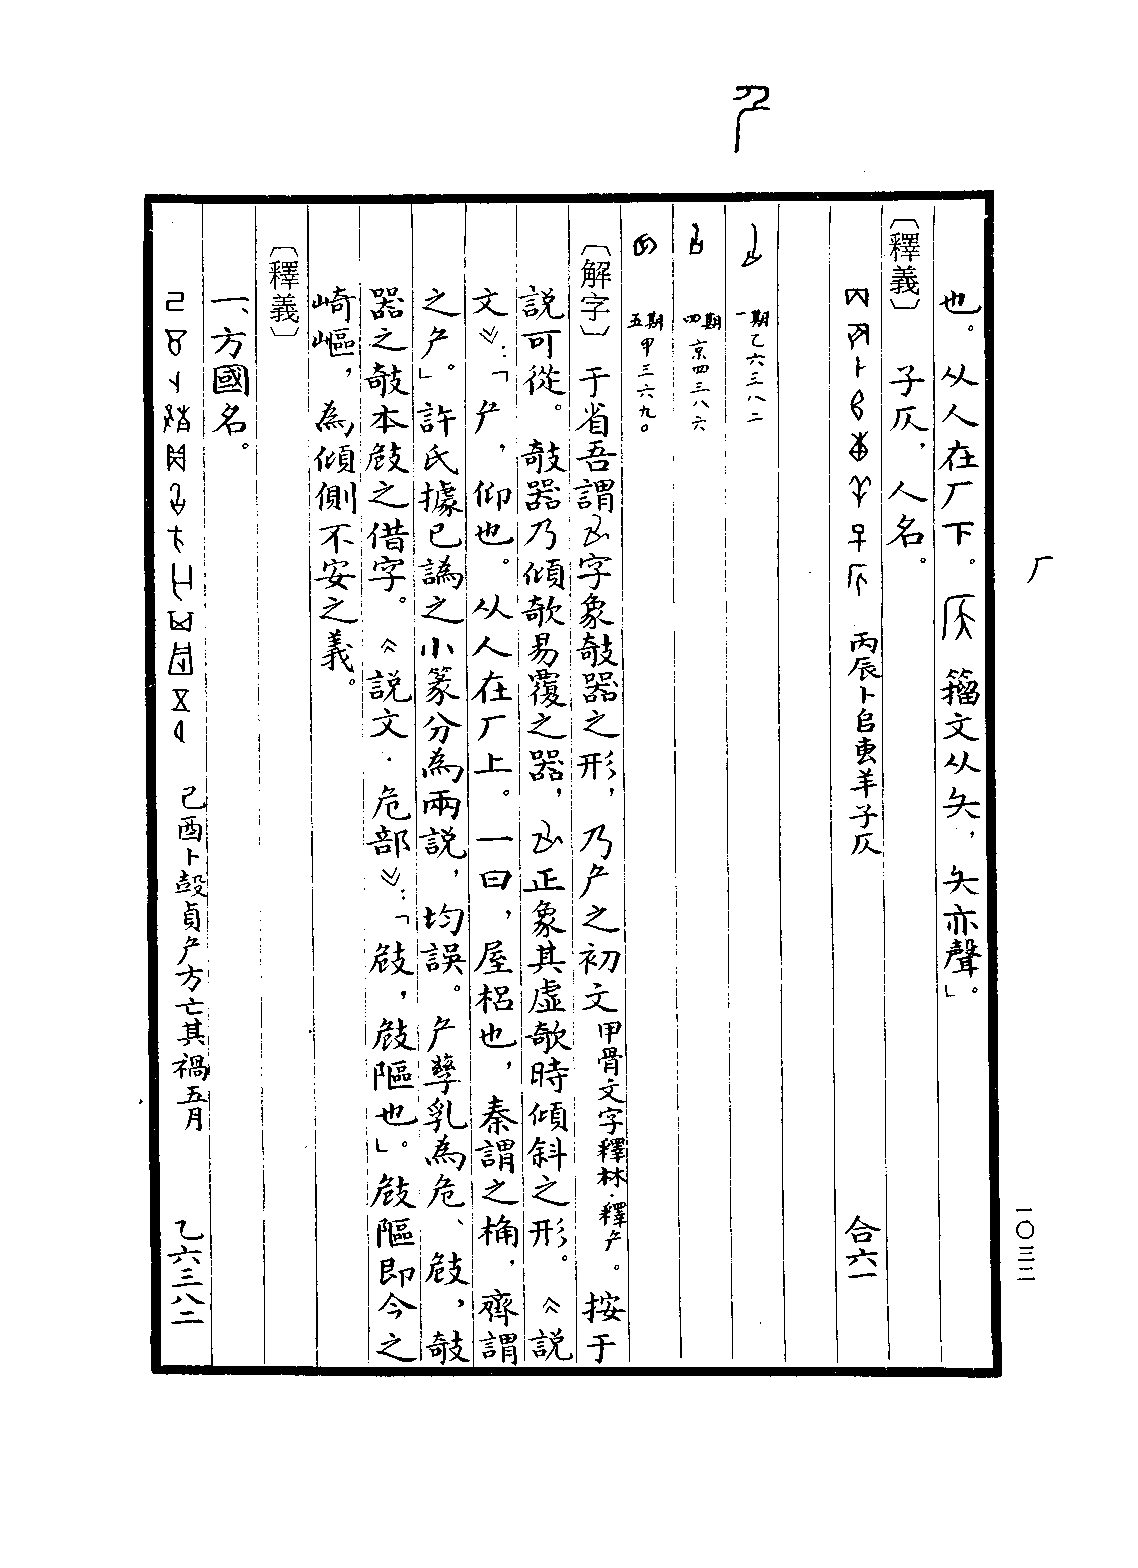 厂
一〇三二
也。从人在厂下。籀文从矢，矢亦聲」。
〔釋義〕
子仄，人名。
丙辰卜㠯叀羊子仄 合六一
一期 乙六三八二
四期 京四三八六
五期 甲三六九。
〔解字〕于省吾謂字象攲器之形，乃厃之初文 甲骨文字釋林·釋厃。按于
說可從。攲器乃傾欹易覆之器，正象其虛欹時傾斜之形。《說
文》：「厃，仰也。从人在厂上。一曰，屋梠也，秦謂之桷，齊謂
之厃。」許氏據已譌之小篆分為兩說，均誤。厃孳乳為危、㩻，攲
器之攲本㩻之借字。《說文·危部》：「㩻，㩻䧢也」。㩻䧢即今之
崎嶇，為傾側不安之義。
〔釋義〕
一、方國名。
己酉卜㱿貞厃方亡其禍五月 乙六三八二